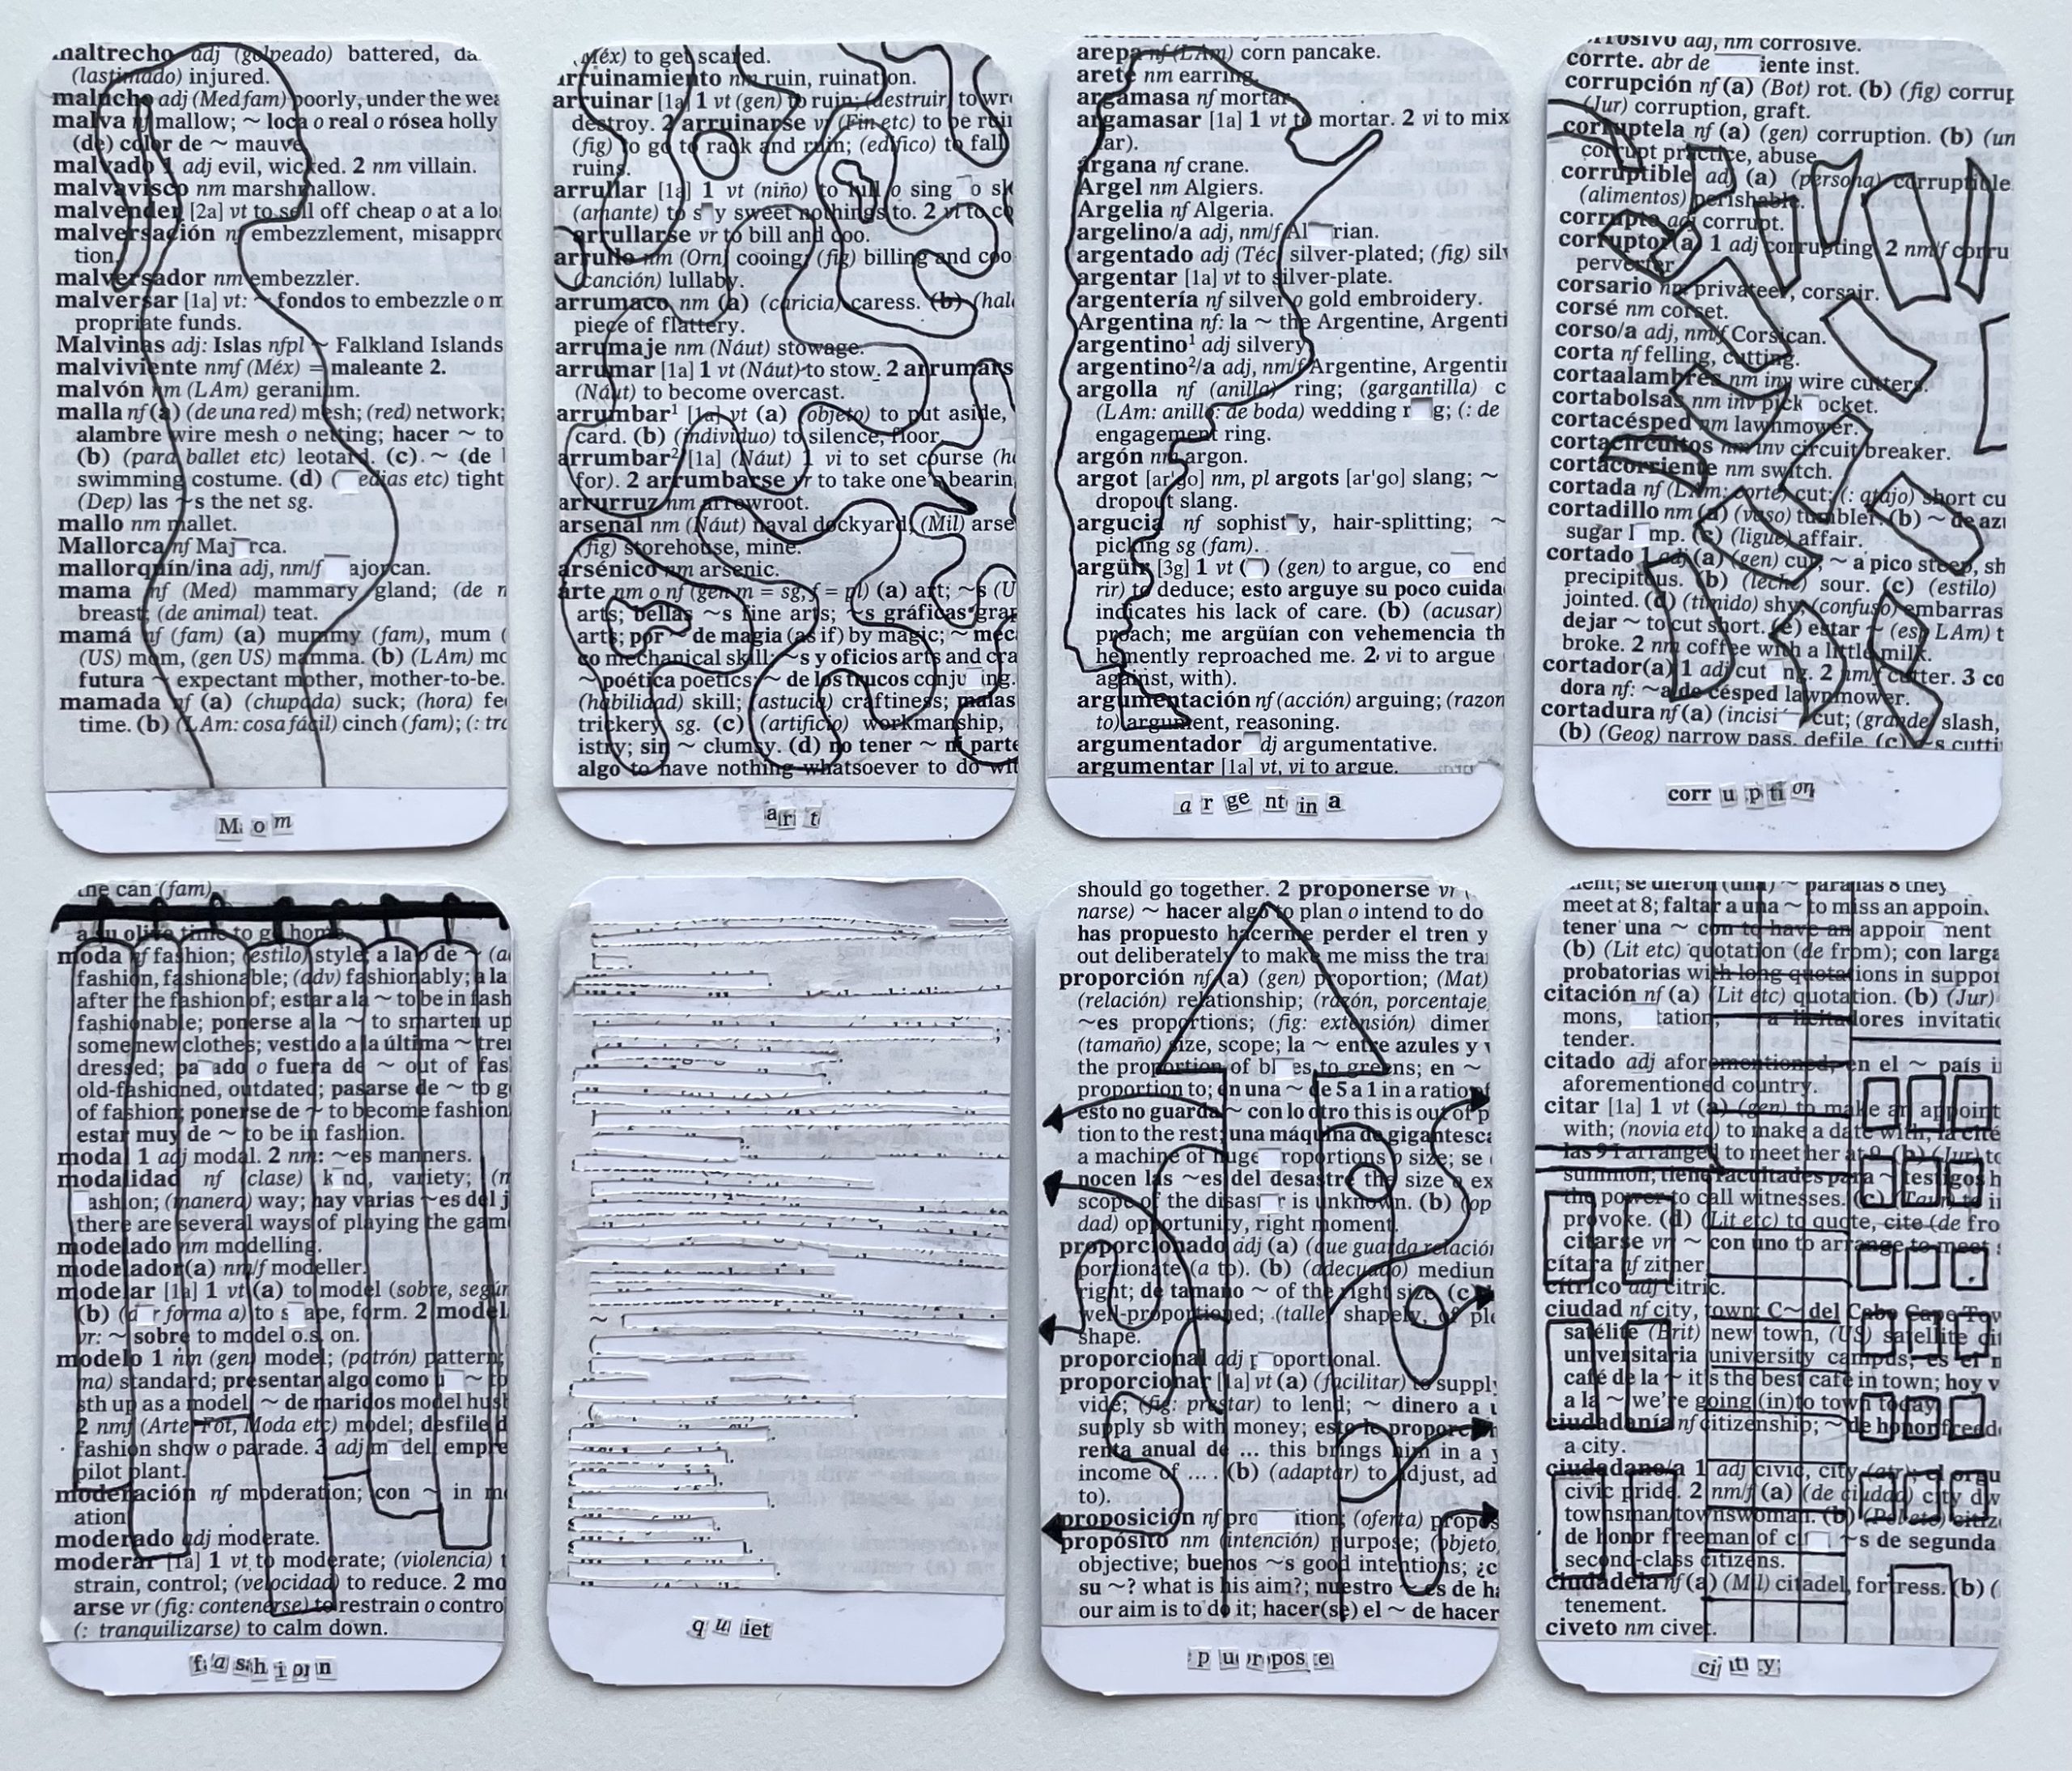 maltrecho adj (golpeado) battered, da
(lastimado) injured.
malucho adj (Med fam) poorly, under the wea
malva nf mallow; ~ loca o real o rósea holly
(de) color de ~ mauve.
malvado 1 adj evil, wicked. 2 nm villain.
malvavisco nm marshmallow.
malvender [2a] vt to sell off cheap o at a lo
malversación nf embezzlement, misappro
tion.
malversador nm embezzler.
malversar [1a] vt: ~ fondos to embezzle o m
propriate funds.
Malvinas adj: Islas nfpl ~ Falkland Islands
malviviente nmf (Méx) = maleante 2.
malvón nm (LAm) geranium.
malla nf (a) (de una red) mesh; (red) network;
alambre wire mesh o netting; hacer ~ to
(b) (para ballet etc) leotard. (c) ~ (de
swimming costume. (d) ( edias etc) tight
(Dep) las ~s the net sg.
mallo nm mallet.
Mallorca nf Maj rca.
mallorquín/ina adj, nm/f ajorcan.
mama nf (Med) mammary gland; (de
breast; (de animal) teat.
mamá nf (fam) (a) mummy (fam), mum (
(US) mom, (gen US) mamma. (b) (LAm) mo
futura ~ expectant mother, mother-to-be.
mamada nf (a) (chupada) suck; (hora) fe
time. (b) (LAm: cosa fácil) cinch (fam); (: tra
Mom
Méx) to get scared.
arruinamiento nm ruin, ruination.
arruinar [1a] 1 vt (gen) to ruin; (destruir) to wr
destroy. 2 arruinarse vr (Fin etc) to be ruin
(fig) to go to rack and ruin; (edifico) to fall
ruins.
arrullar [1a] 1 vt (niño) to lull o sing o sl
(amante) to s y sweet nothings to. 2 vi to co
arrullarse vr to bill and coo.
arrullo nm (Orn) cooing; (fig) billing and coo
(canción) lullaby.
arrumaco nm (a) (caricia) caress. (b) (hal
piece of flattery.
arrumaje nm (Náut) stowage.
arrumar [1a] 1 vt (Náut) to stow. 2 arrumars
(Náut) to become overcast.
arrumbar¹ [1a] vt (a) (objeto) to put aside,
card. (b) (individuo) to silence, floor.
arrumbar² [1a] (Náut) 1 vi to set course (h
for). 2 arrumbarse vr to take one's bearin
arrurruz nm arrowroot.
arsenal nm (Náut) naval dockyard; (Mil) arse
(fig) storehouse, mine.
arsénico nm arsenic.
arte nm o nf (gen m = sg, f = pl) (a) art; ~s (U
arts; bellas ~s fine arts; ~s gráficas grap
arts; por ~ de magia (as if) by magic; ~ mec
co mechanical skill; ~s y oficios arts and cra
~ poética poetics; ~ de los trucos conju ing.
(habilidad) skill; (astucia) craftiness; malas
trickery sg. (c) (artificio) workmanship,
istry; sin ~ clumsy. (d) no tener ~ ni parte
algo to have nothing whatsoever to do wit
art
arepa nf (LAm) corn pancake.
arete nm earring.
argamasa nf mortar.
argamasar [1a] 1 vt to mortar. 2 vi to mix
tar).
árgana nf crane.
Argel nm Algiers.
Argelia nf Algeria.
argelino/a adj, nm/f Al rian.
argentado adj (Téc) silver-plated; (fig) silv
argentar [1a] vt to silver-plate.
argentería nf silver o gold embroidery.
Argentina nf: la ~ the Argentine, Argenti
argentino¹ adj silvery.
argentino²/a adj, nm/f Argentine, Argentin
argolla nf (anilla) ring; (gargantilla) c
(LAm: anillo: de boda) wedding r g; (: de
engagement ring.
argón nm argon.
argot [ar'go] nm, pl argots [ar'go] slang; ~
dropout slang.
argucia nf sophist y, hair-splitting; ~
picking sg (fam).
argüir [3g] 1 vt ( ) (gen) to argue, co end
rir) to deduce; esto arguye su poco cuida
indicates his lack of care. (b) (acusar)
proach; me argüían con vehemencia th
hemently reproached me. 2 vi to argue
against, with).
argumentación nf (acción) arguing; (razon
to) argument, reasoning.
argumentador dj argumentative.
argumentar [1a] vt, vi to argue.
argentina
corrosivo adj, nm corrosive.
corrte. abr de iente inst.
corrupción nf (a) (Bot) rot. (b) (fig) corrup
(Jur) corruption, graft.
corruptela nf (a) (gen) corruption. (b) (un
corrupt practice, abuse
corruptible adj (a) (persona) corruptible
(alimentos) perishable.
corrupto adj corrupt.
corruptor(a) 1 adj corrupting. 2 nm/f corru
perverter.
corsario nm privateer, corsair.
corsé nm corset.
corso/a adj, nm/f Corsican.
corta nf felling, cutting.
cortaalambres nm inv wire cutters.
cortabolsas nm inv pick ocket.
cortacésped nm lawnmower.
cortacircuitos nm inv circuit breaker.
cortacorriente nm switch.
cortada nf (LAm: corte) cut; (: atajo) short cu
cortadillo nm (a) (vaso) tumbler. (b) ~ de azú
sugar l mp. (c) (ligue) affair.
cortado 1 adj (a) (gen) cut; ~ a pico steep, sh
precipitous. (b) (leche) sour. (c) (estilo)
jointed. (d) (tímido) shy; (confuso) embarras
dejar ~ to cut short. (e) estar ~ (esp LAm) t
broke. 2 nm coffee with a little milk.
cortador(a) 1 adj cut ng. 2 nm/f cutter. 3 co
dora nf: ~a de césped lawnmower.
cortadura nf (a) (incisi cut; (grande) slash,
(b) (Geog) narrow pass, defile. (c) ~s cutti
corruption
the can (fam)
a su olivo time to go home.
moda nf fashion; (estilo) style; a la o de ~ (a
fashion, fashionable; (adv) fashionably; a la
after the fashion of; estar a la ~ to be in fash
fashionable; ponerse a la ~ to smarten up
some new clothes; vestido a la última ~ tren
dressed; pa ado o fuera de ~ out of fas
old-fashioned, outdated; pasarse de ~ to g
of fashion; ponerse de ~ to become fashion
estar muy de ~ to be in fashion.
modal 1 adj modal. 2 nm: ~es manners.
modalidad nf (clase) k nd, variety; (m
ashion; (manera) way; hay varias ~es del j
there are several ways of playing the gam
modelado nm modelling.
modelador(a) nm/f modeller.
modelar [1a] 1 vt (a) to model (sobre, según
(b) (d r forma a) to s ape, form. 2 model
vr: ~ sobre to model o.s. on.
modelo 1 nm (gen) model; (patrón) pattern;
ma) standard; presentar algo como u ~ to
sth up as a model; ~ de maridos model husb
2 nmf (Arte Fot, Moda etc) model; desfile d
fashion show o parade. 3 adj m del, empre
pilot plant.
moderación nf moderation; con ~ in m
ation
moderado adj moderate.
moderar [1a] 1 vt to moderate; (violencia) t
strain, control; (velocidad) to reduce. 2 mo
arse vr (fig: contenerse) to restrain o contro
(: tranquilizarse) to calm down.
fashion
~
quiet
should go together. 2 proponerse vr (
narse) ~ hacer algo to plan o intend to do
has propuesto hacerme perder el tren y
out deliberately to make me miss the trai
proporción nf (a) (gen) proportion; (Mat)
(relación) relationship; (razón, porcentaje
~es proportions; (fig: extensión) dimen
(tamaño) size, scope; la ~ entre azules y v
the proportion of bl es to greens; en ~
proportion to; en una ~ de 5 a 1 in a ratio of
esto no guarda ~ con lo otro this is out of p
tion to the rest; una máquina de gigantesca
a machine of huge roportions o size; se
nocen las ~es del desastre the size o ex
scope of the disast r is unknown. (b) (op
dad) opportunity, right moment.
proporcionado adj (a) (que guarda relación
portionate (a to). (b) (adecuado) medium
right; de tamano ~ of the right size. (c)
well-proportioned; (talle) shapely, of ple
shape.
proporcional adj p oportional.
proporcionar [1a] vt (a) (facilitar) to supply
vide; (fig: prestar) to lend; ~ dinero a u
supply sb with money; esto le proporcin
renta anual de ... this brings him in a y
income of .... (b) (adaptar) to adjust, ad
to).
proposición nf pro ition; (oferta) propos
propósito nm (intención) purpose; (objeto,
objective; buenos ~s good intentions; ¿c
su ~? what is his aim?; nuestro ~ es de ha
our aim is to do it; hacer(se) el ~ de hacer
purpose
ment; se dieron (una) ~ para las 8 they
meet at 8; faltar a una ~ to miss an appoin.
tener una ~ con to have an appoin ment
(b) (Lit etc) quotation (de from); con larga
probatorias with long quotations in suppor
citación nf (a) (Lit etc) quotation. (b) (Jur)
mons, tation; a licitadores invitatio
tender.
citado adj aforementioned; en el ~ país i
aforementioned country.
citar [1a] 1 vt (a) (gen) to make an appoint
with; (novia etc) to make a date with; la cité
las 9 I arranged to meet her at 9. (b) (Jur) to
summon; tiene facultades para ~ testigos h
the power to call witnesses. (c) (Taur) to i
provoke. (d) (Lit etc) to quote, cite (de fro
citarse vr ~ con uno to arrange to meet s
cítara nf zither.
cítrico adj citric.
ciudad nf city, town; C~ del Cabo Cape Tow
satélite (Brit) new town, (US) satellite cit
universitaria university campus; es el m
café de la ~ it's the best café in town; hoy v
a la ~ we're going (in)to town today.
ciudadanía nf citizenship; ~ de honor freed
a city.
ciudadano/a 1 adj civic, city (atr); el orgu
civic pride. 2 nm/f (a) (de ciudad) city dw
townsman/townswoman. (b) (Pol etc) citiz
de honor freeman of ci ~s de segunda
second-class citizens.
ciudadela nf (a) (Mil) citadel, fortress. (b) (
tenement.
civeto nm civet.
city